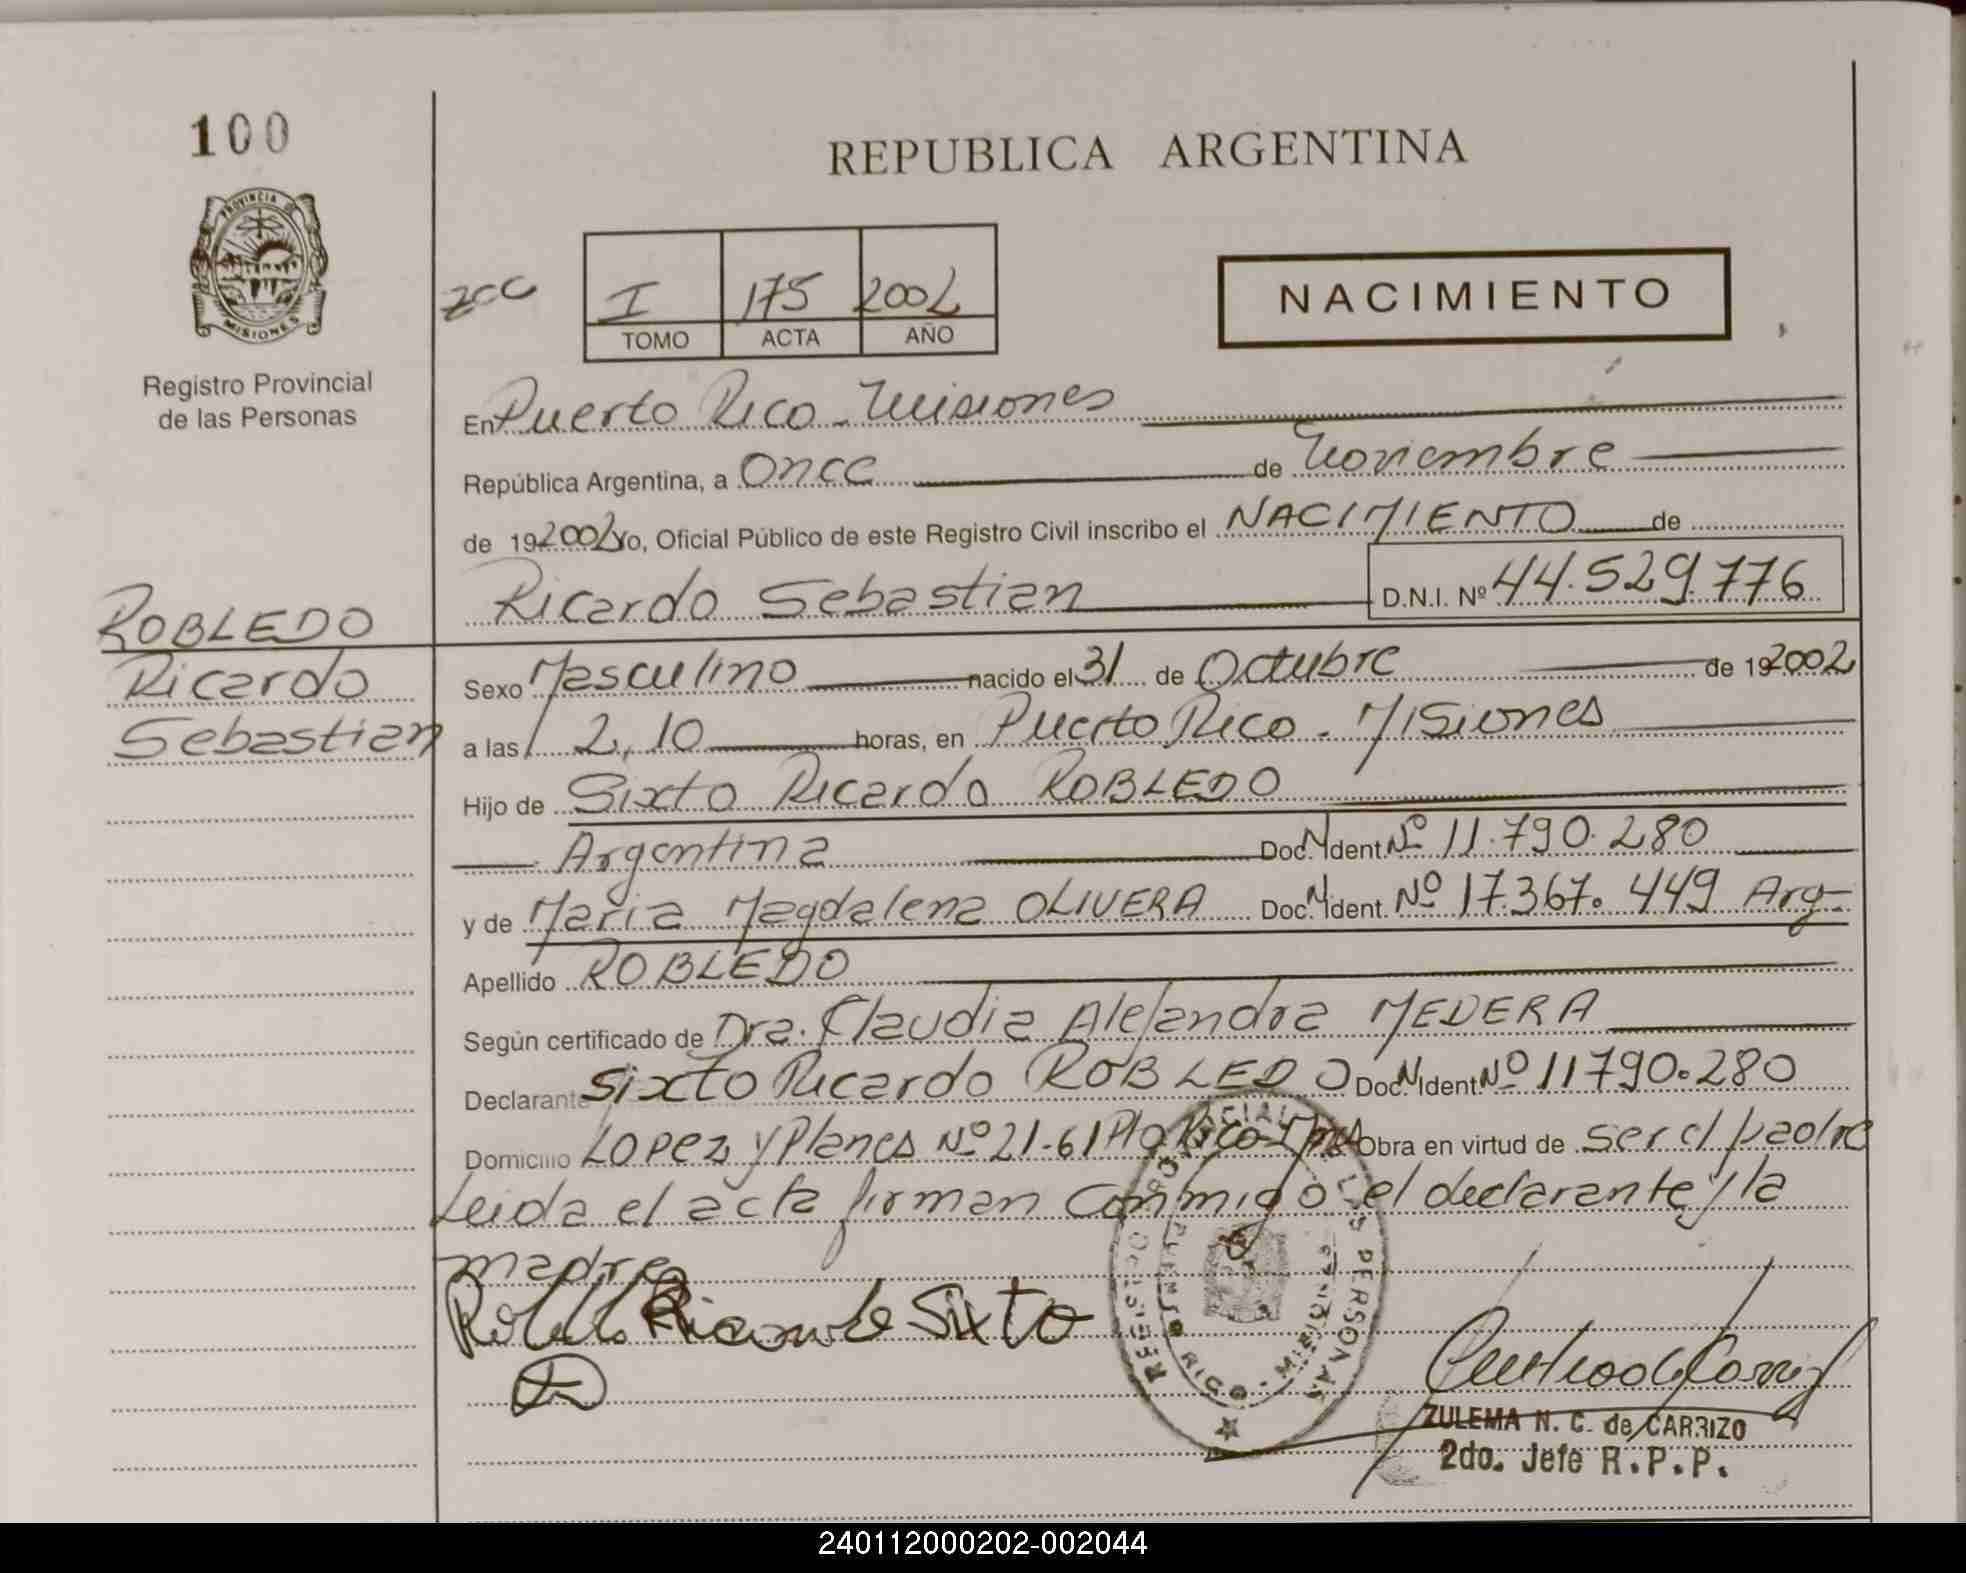 100
REPUBLICA ARGENTINA
PROVINCIA DE
MISIONES
Registro Provincial
de las Personas
zcc
I 175 2002
TOMO ACTA AÑO
NACIMIENTO
En Puerto Rico - Misiones
República Argentina, a Once de Noviembre
de 192002 Yo, Oficial Público de este Registro Civil inscribo el NACIMIENTO de
Ricardo Sebastian D.N.I. Nº 44.529.776
ROBLEDO
Ricardo
Sebastian
Sexo Masculino nacido el 31 de Octubre de 192002
a las 12,10 horas, en Puerto Rico - Misiones
Hijo de Sixto Ricardo ROBLEDO
Argentina Doc. N. Ident. Nº 11.790.280
y de Maria Magdalena OLIVERA Doc. N. Ident. Nº 17.367.449 Arg-
Apellido ROBLEDO
Según certificado de Dra. Claudia Alejandra MEDERA
Declarante Sixto Ricardo ROBLEDO Doc. N. Ident. Nº 11790.280
Domicilio LOPEZ y Planes Nº 21-61 Pto Rico - Mnes Obra en virtud de ser el padre
Leida el acta firman conmigo el declarante y la
madre
Robledo Ricardo Sixto
REGISTRO PROVINCIAL DE LAS PERSONAS
PUERTO RICO - MISIONES
ZULEMA N. C. de CARRIZO
2do. Jefe R.P.P.
240112000202-002044